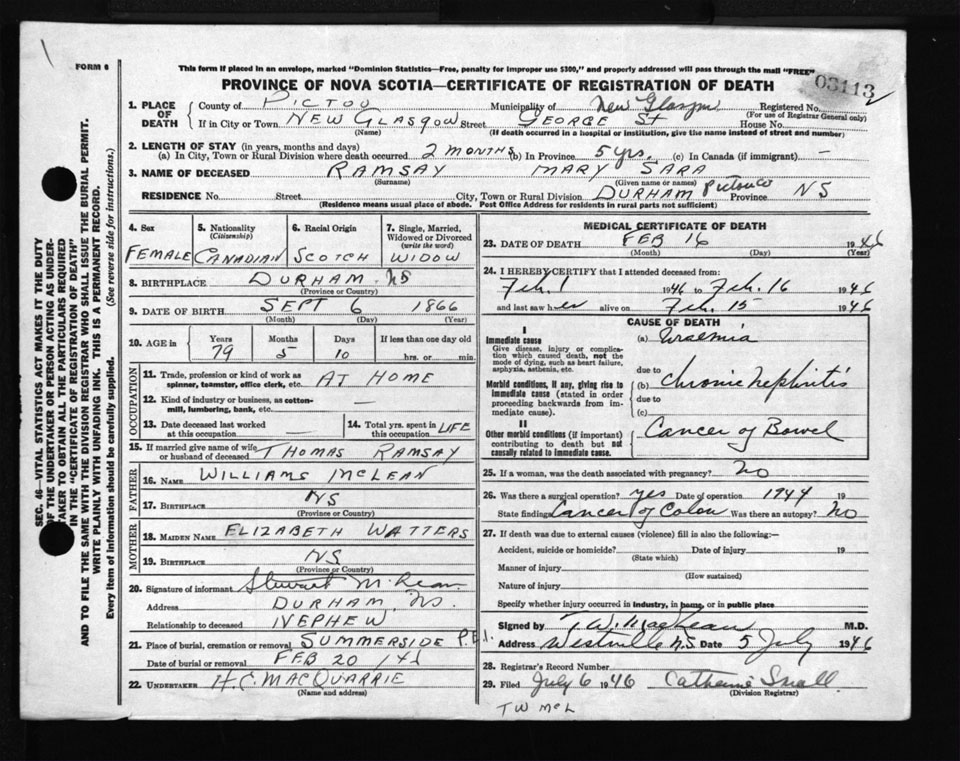 FORM 6
This form if placed in an envelope, marked "Dominion Statistics—Free, penalty for improper use $300," and properly addressed will pass through the mail "FREE"
PROVINCE OF NOVA SCOTIA—CERTIFICATE OF REGISTRATION OF DEATH
03113
2
1. PLACE OF DEATH
County of PICTOU Municipality of New Glasgow Registered No.
(For use of Registrar General only)
If in City or Town NEW GLASGOW Street GEORGE ST House No.
(Name) (If death occurred in a hospital or institution, give the name instead of street and number)
2. LENGTH OF STAY (in years, months and days)
(a) In City, Town or Rural Division where death occurred 2 MONTHS (b) In Province 5 yrs. (c) In Canada (if immigrant) —
3. NAME OF DECEASED RAMSAY MARY SARA
(Surname) (Given name or names)
RESIDENCE No. Street City, Town or Rural Division DURHAM Pictou Co Province NS
(Residence means usual place of abode. Post Office Address for residents in rural parts not sufficient)
4. Sex FEMALE
5. Nationality (Citizenship) CANADIAN
6. Racial Origin SCOTCH
7. Single, Married, Widowed or Divorced (write the word) WIDOW
8. BIRTHPLACE DURHAM NS
(Province or Country)
9. DATE OF BIRTH SEPT 6 1866
(Month) (Day) (Year)
10. AGE in Years 79 Months 5 Days 10 If less than one day old hrs. or min.
OCCUPATION
11. Trade, profession or kind of work as spinner, teamster, office clerk, etc. AT HOME
12. Kind of industry or business, as cotton-mill, lumbering, bank, etc. —
13. Date deceased last worked at this occupation —
14. Total yrs. spent in this occupation LIFE
15. If married give name of wife or husband of deceased THOMAS RAMSAY
FATHER
16. NAME WILLIAMS MCLEAN
17. BIRTHPLACE NS
(Province or Country)
MOTHER
18. MAIDEN NAME ELIZABETH WATTERS
19. BIRTHPLACE NS
(Province or Country)
20. Signature of informant Stewart McLean
Address DURHAM, NS.
Relationship to deceased NEPHEW
21. Place of burial, cremation or removal SUMMERSIDE P.E.I.
Date of burial or removal FEB 20
22. UNDERTAKER H.C. MACQUARRIE
(Name and address)
MEDICAL CERTIFICATE OF DEATH
23. DATE OF DEATH FEB 16 1946
(Month) (Day) (Year)
24. I HEREBY CERTIFY that I attended deceased from:
Feb. 1 1946 to Feb. 16 1946
and last saw her alive on Feb. 15 1946
CAUSE OF DEATH
I
Immediate cause
Give disease, injury or complication which caused death, not the mode of dying, such as heart failure, asphyxia, asthenia, etc.
(a) Uraemia
due to
Morbid conditions, if any, giving rise to immediate cause (stated in order proceeding backwards from immediate cause).
(b) Chronic Nephritis
due to
(c)
II
Other morbid conditions (if important) contributing to death but not causally related to immediate cause.
Cancer of Bowel
25. If a woman, was the death associated with pregnancy? No
26. Was there a surgical operation? yes Date of operation 1944 19
State findings Cancer of Colon Was there an autopsy? No
27. If death was due to external causes (violence) fill in also the following:—
Accident, suicide or homicide? Date of injury 19
(State which)
Manner of injury
(How sustained)
Nature of injury
Specify whether injury occurred in industry, in home, or in public place
Signed by T.W. MacLean M.D.
Address Westville N.S. Date 5 July 1946
28. Registrar's Record Number
29. Filed July 6 1946 Catherine Small
(Division Registrar)
T W McL
SEC. 46—VITAL STATISTICS ACT MAKES IT THE DUTY
OF THE UNDERTAKER OR PERSON ACTING AS UNDER-
TAKER TO OBTAIN ALL THE PARTICULARS REQUIRED
IN THE "CERTIFICATE OF REGISTRATION OF DEATH"
AND TO FILE THE SAME WITH THE DIVISION REGISTRAR WHO SHALL ISSUE THE BURIAL PERMIT.
WRITE PLAINLY WITH UNFADING INK. THIS IS A PERMANENT RECORD.
Every item of information should be carefully supplied. (See reverse side for instructions.)